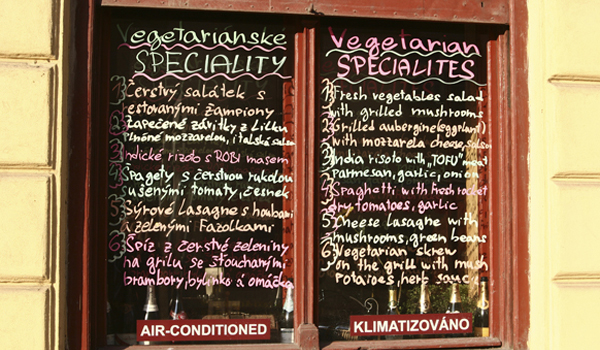 Vegetariánské
SPECIALITY
1 Čerstvý salátek s
restovanými žampiony
2 Zapečené závitky z lilku
plněné mozzarelou, italská salsa
3 Indické rizoto s ROBI masem
4 Spagety s čerstvou rukolou
sušenými tomaty, česnek
5 Sýrové lasagne s houbami
a zelenými Fazolkami
6 Špíz z čerstvé zeleniny
na grilu se šťouchanými
brambory, bylinko á omáčka
AIR-CONDITIONED
Vegetarian
SPECIALITES
1 Fresh vegetables salad
with grilled mushrooms
2 Grilled aubergine(eggplant)
with mozzarela cheese, salsa
3 India risoto with "TOFU" meat
parmesan, garlic, onion
4 Spaghetti with fresh rocket
dry tomatoes, garlic
5 Cheese lasagne with
mushrooms, green beans
6 Vegetarian skrew
on the grill with mush
potatoes, herb sauce
KLIMATIZOVÁNO